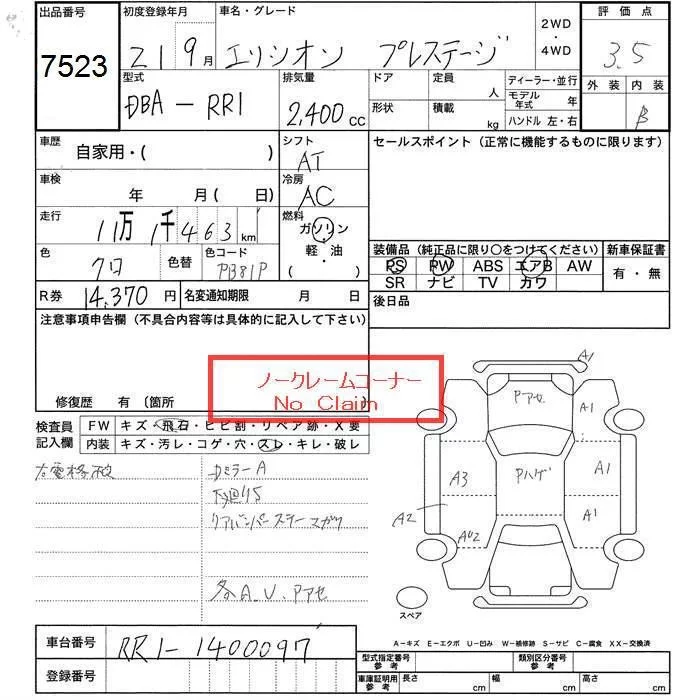 出品番号 初度登録年月 車名・グレード 2WD・4WD 評価点
7523 21 9月 エリシオン プレステージ 3.5
型式 排気量 ドア 定員 人 ディーラー・並行 外装 内装
DBA-RR1 2,400cc 形状 積載 kg モデル年式 年 ハンドル 左・右 B
車歴 自家用・( ) シフト AT セールスポイント(正常に機能するものに限ります)
車検 年 月 ( 日) 冷房 AC
走行 11万1千463km 燃料 ガソリン・軽・油 ( )
装備品(純正品に限り○をつけてください) 新車保証書
色 クロ 色替 色コード PB81P
PS PW ABS エアB AW 有・無
SR ナビ TV カワ
R券 14,370円 名変通知期限 月 日 後日品
注意事項申告欄(不具合内容等は具体的に記入して下さい)
ノークレームコーナー
No Claim
修復歴 有 〔箇所
検査員記入欄 FW キズ・飛石・ヒビ割・リペア跡・X要
内装 キズ・汚レ・コゲ・穴・スレ・キレ・破レ
ミラーA
リアバンパーステーマガリ
各A.U.Pアセ
A1
Pアセ A1
A3 Pハゲ A1
A2 A1
AU2
スペア
A-キズ E-エクボ U-凹み W-補修跡 S-サビ C-腐食 XX-交換済
車台番号 RR1-1400097
登録番号
型式指定番号 参考 類別区分番号 参考
車庫証明用 参考 長さ cm 幅 cm 高さ cm